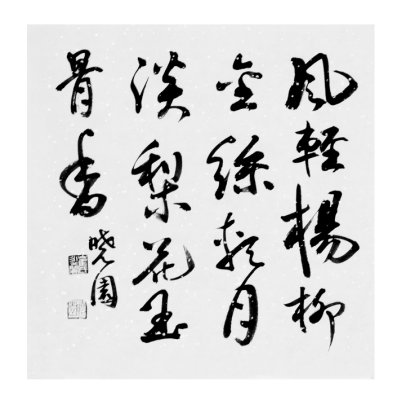 風輕楊柳
金線軟月
淡梨花玉
骨香
晓園